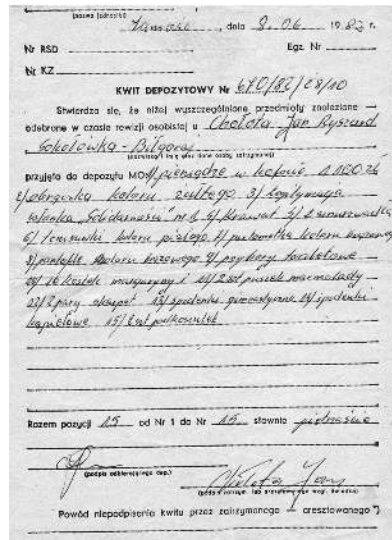 (nazwa jednostki)
Zamość, dnia 8.06 1982 r.
Nr RSD Egz. Nr
Nr KZ
KWIT DEPOZYTOWY Nr 640/82/28/10
Stwierdza się, że niżej wyszczególnione przedmioty znalezione —
odebrane w czasie rewizji osobistej u Chołota Jan Ryszard
Sokołówka - Biłgoraj
przyjęto do depozytu MO 1/ pieniądze w kwocie 1.180 zł
2/ obrączka koloru żółtego 3/ legitymacja
członka Solidarności 4/ krawat 5/ 2 sznurowadła
6/ koloru białego 7/ koloru
8/ pantofle koloru brązowego 9/ przybory toaletowe
10/ 16 kostek margaryny i 11/ 2 szt marmolady
12/ 2 pary skarpet 13/ spodenki gimnastyczne 14/ spodenki
kąpielowe 15/ szt podkoszulek
Razem pozycji 15 od Nr 1 do Nr 15 słownie piętnaście
(podpis odbierającego dep.)
Chołota Jan
Powód niepodpisania kwitu przez zatrzymanego — aresztowanego *)